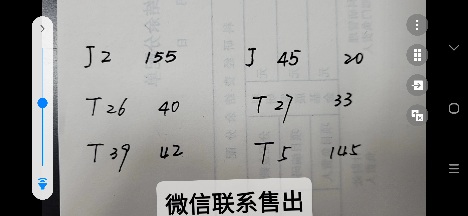 J2 155 J 45 20
T26 40 T27 33
T39 42 T5 145
微信联系售出